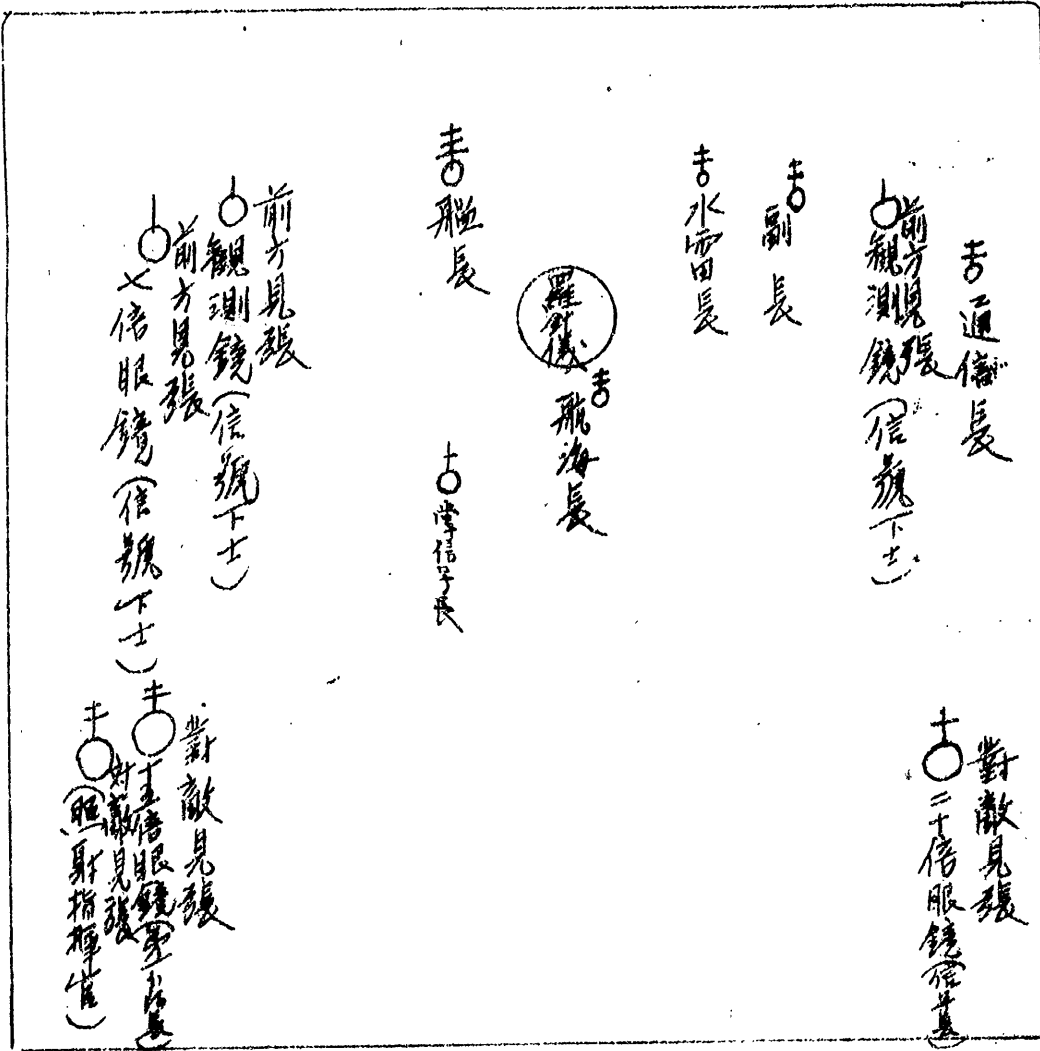 通信長
前方見張
観測鏡(信號下士)
副長
水雷長
羅針儀
航海長
艦長
掌信号長
前方見張
観測鏡(信號下士)
前方見張
七倍眼鏡(信號下士)
對敵見張
二十倍眼鏡(信
對敵見張
十五倍眼鏡(
対敵見張
(照射指揮官)